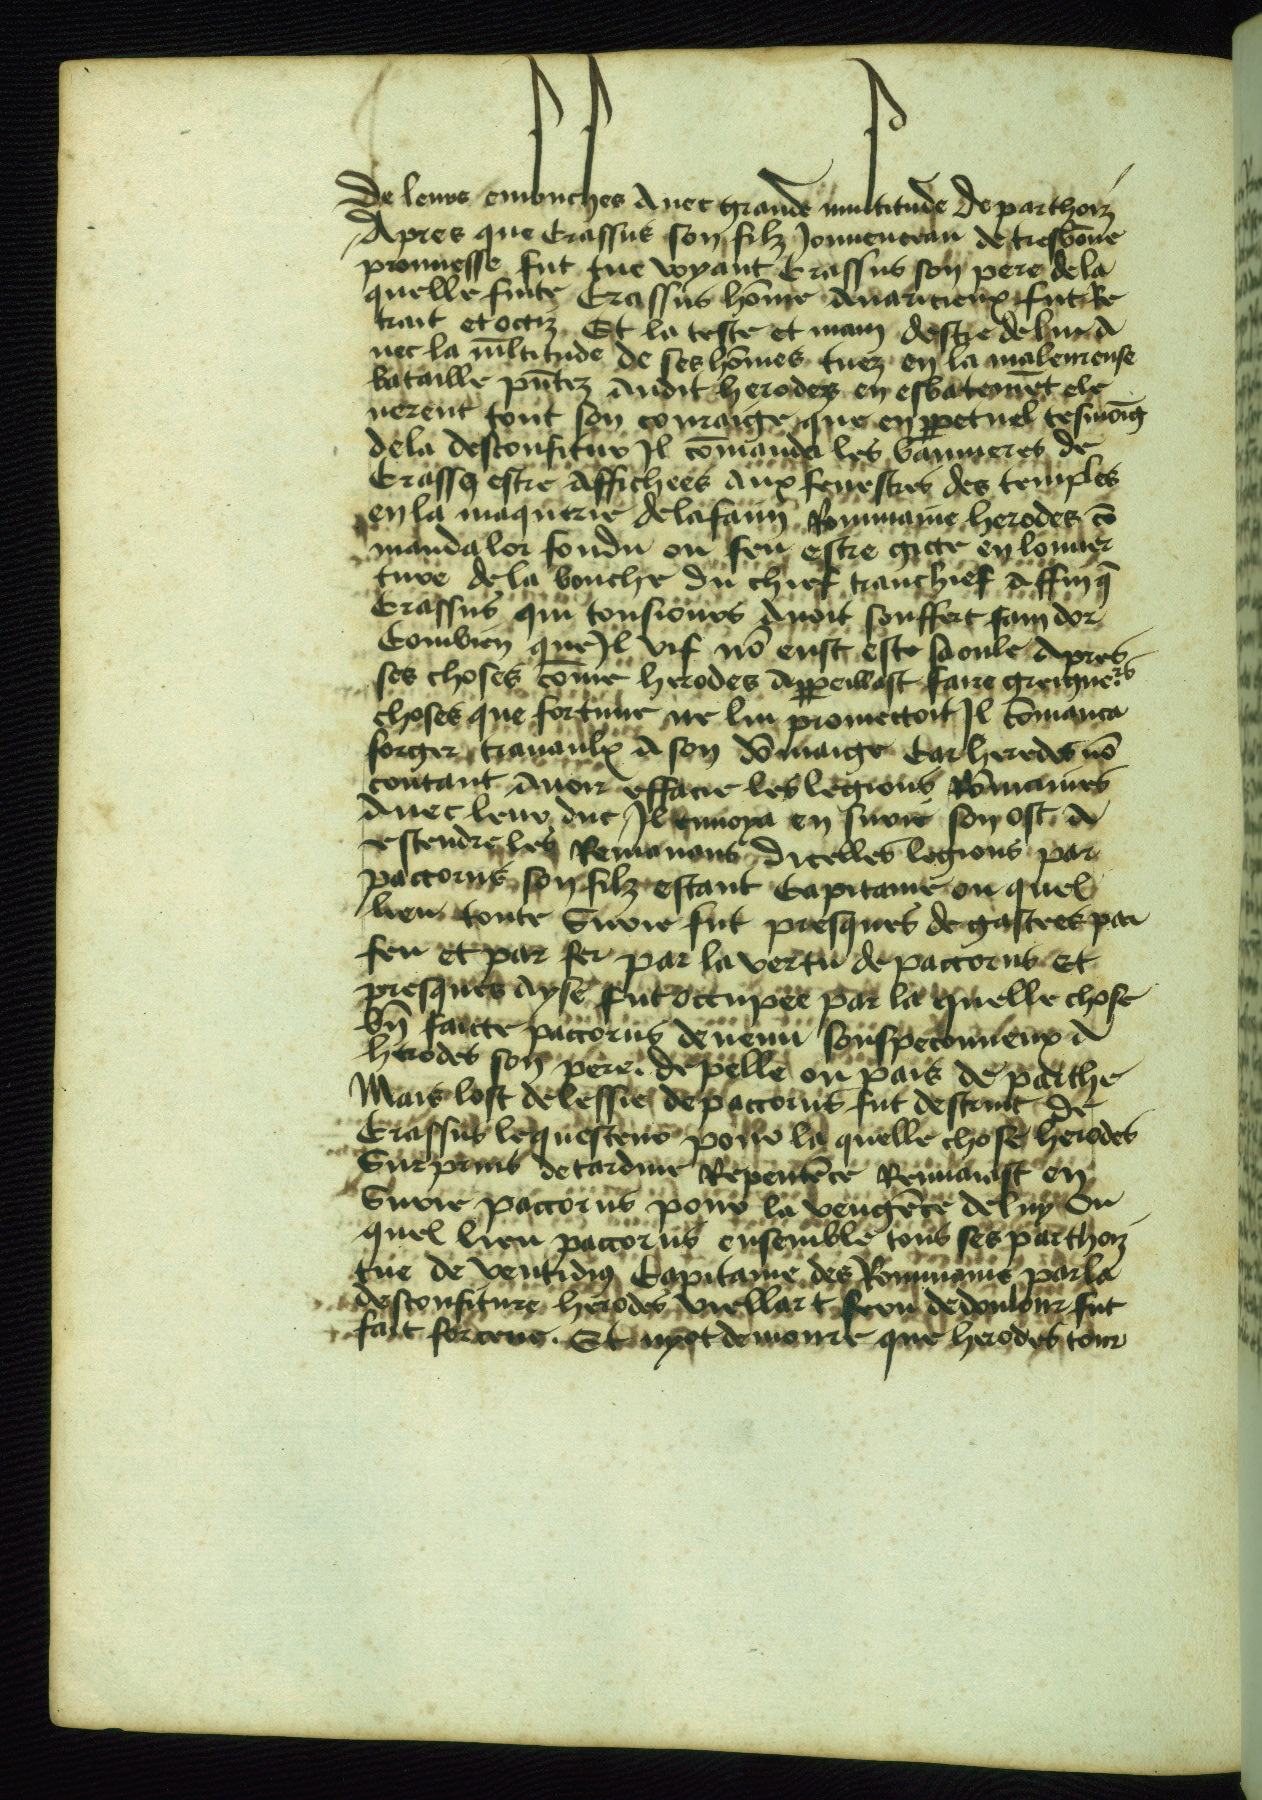 De leurs embuches Auec grande multitude de parthoiz
Apres que Crassus son filz Jouuenceau de tresbōne
prouuesse fut tue voyant Crassus son pere de la
quelle fuite Crassus hōme auaricieux fut Re
trait et occiz Et la teste et main destre de lui a
uec la mltitude de ses hōmes tuez en la maleureuse
bataille pn̄tez audit herodes en esbatemēt ele
uerent tout son couraige que en ppetuel tesmoīg
de la desconfiture Il cōmanda les bannieres de
Crassus estre Affichees aux fenestres des temples
en la maquerie de la faim Rommaine herodes cō
manda lor fondu ou feu estre gicte en louuer
ture de la bouche du chief tranchief affin q̄
Crassus qui tousiours auoit souffert faim dor
Combien que Il vif nō eust este saoule Apres
ses choses cōme herodes Appeillast faire greigneurs
choses que fortune ne lui promectoit Il cōmanca
forger trauaulx a son dōmaige Car herodes nō
contant auoir effacie les legions Rōmaines
Auec leur duc Il enuoya en surie son ost a
estendre les Remanans dicelles legions par
paccorus son filz estant Capitaine ou quel
lieu toute Surie fut presques degastees par
feu et par fer par la vertu de paccorus Et
presques Ayse fut occupee par la quelle chose
bn̄ faicte paccorus deuenu souspeconneux a
herodes son pere. depelle ou pais de parthe
Mais lost delessie de paccorus fut destruit de
Crassus le questeur pour la quelle chose herodes
Surprins de tardiue Repentēce Renuoiast en
Surie paccorus pour la vengēce de luy Ou
quel lieu paccorus ensemble tous ses parthoiz
tue de ventidius Capitaine des Rommains par la
desconfiture herodes viellart feru de douleur fut
fait forcene. Et upot demoure que herodes tour